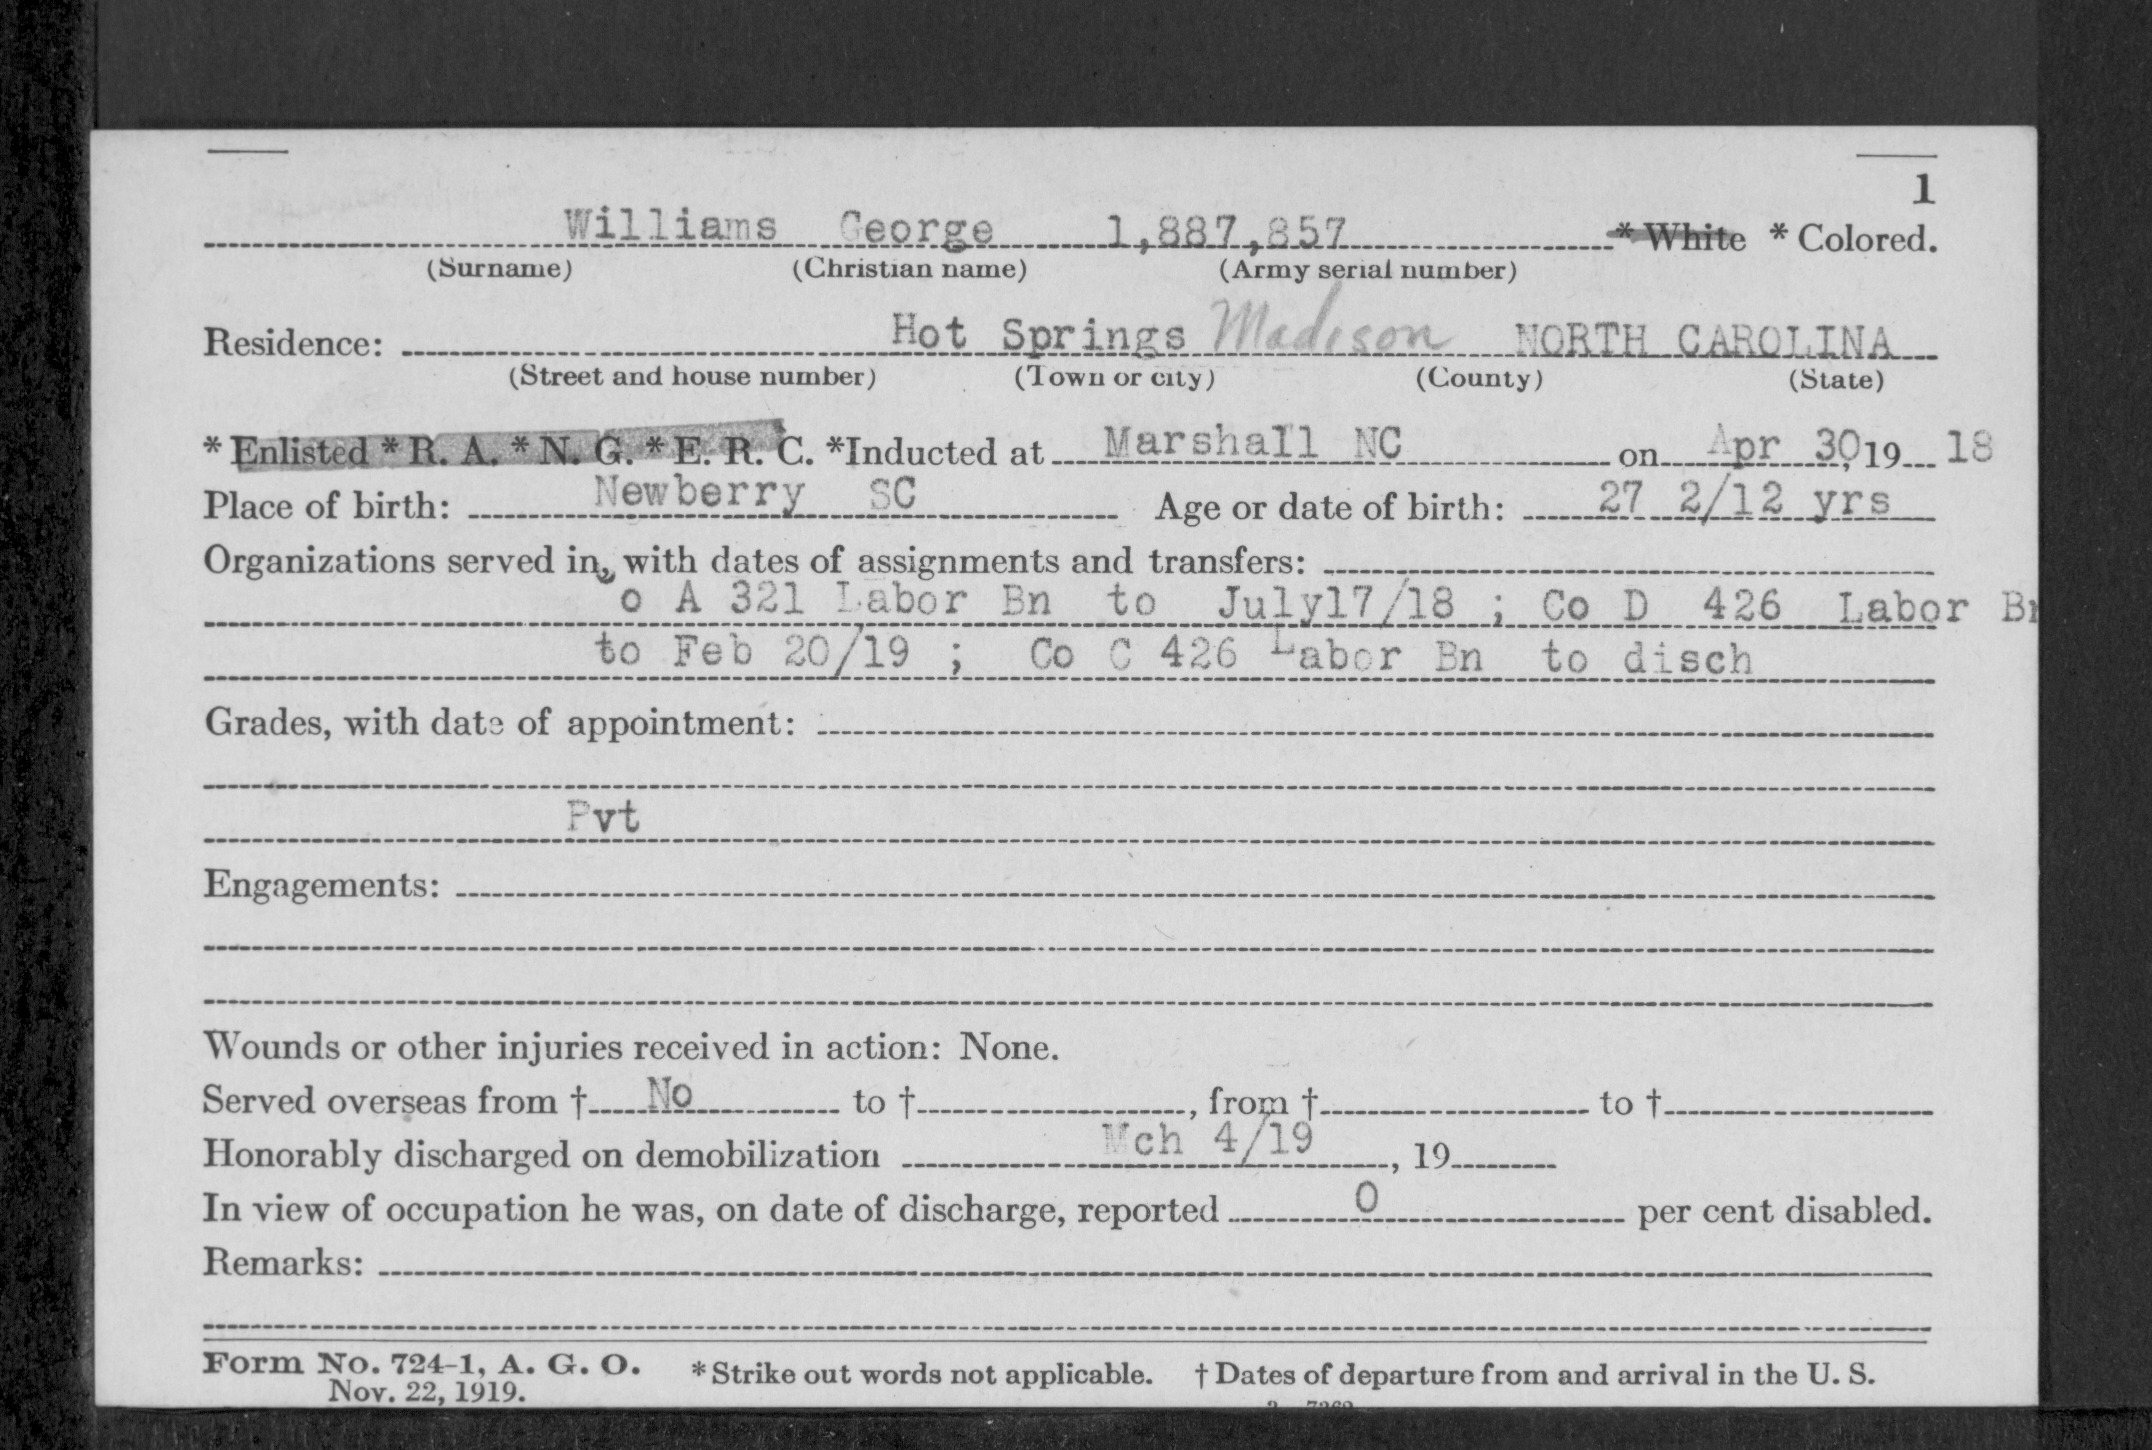 1
Williams George 1,887,857 * White * Colored.
(Surname) (Christian name) (Army serial number)
Residence: Hot Springs Madison NORTH CAROLINA
(Street and house number) (Town or city) (County) (State)
* Enlisted * R. A. * N. G. * E. R. C. *Inducted at Marshall NC on Apr 30, 19 18
Place of birth: Newberry SC Age or date of birth: 27 2/12 yrs
Organizations served in, with dates of assignments and transfers:
o A 321 Labor Bn to July17/18 ; Co D 426 Labor Bn
to Feb 20/19 ; Co C 426 Labor Bn to disch
Grades, with date of appointment:
Pvt
Engagements:
Wounds or other injuries received in action: None.
Served overseas from † No to † , from † to †
Honorably discharged on demobilization Mch 4/19 , 19
In view of occupation he was, on date of discharge, reported 0 per cent disabled.
Remarks:
Form No. 724-1, A. G. O. * Strike out words not applicable. † Dates of departure from and arrival in the U. S.
Nov. 22, 1919.